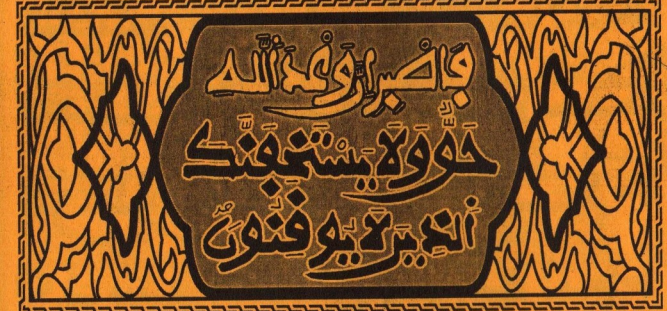 فَاصْبِرْ إِنَّ وَعْدَ اللَّهِ
حَقٌّ وَلَا يَسْتَخِفَّنَّكَ
الَّذِينَ لَا يُوقِنُونَ